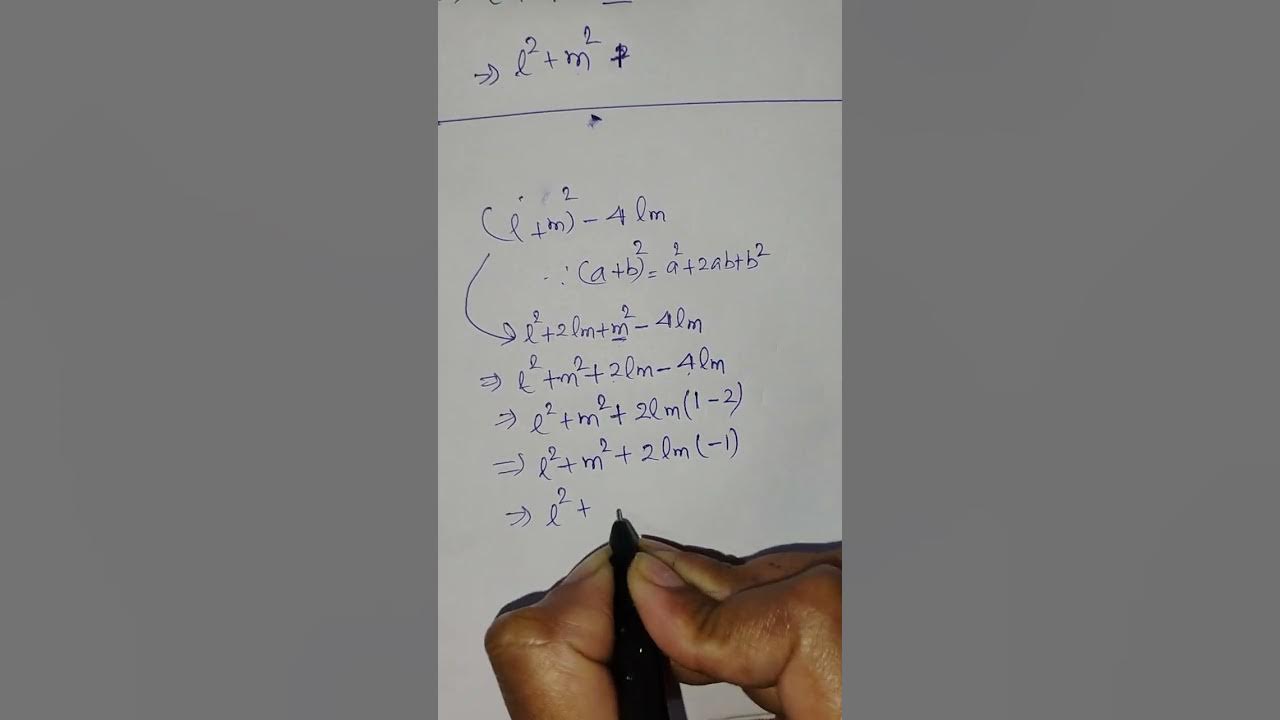 ⇒ l² + m² +
(l+m)² - 4lm
∵ (a+b)² = a²+2ab+b²
l²+2lm+m² - 4lm
⇒ l²+m²+2lm-4lm
⇒ l²+m²+2lm(1-2)
⇒ l²+m²+2lm(-1)
⇒ l²+